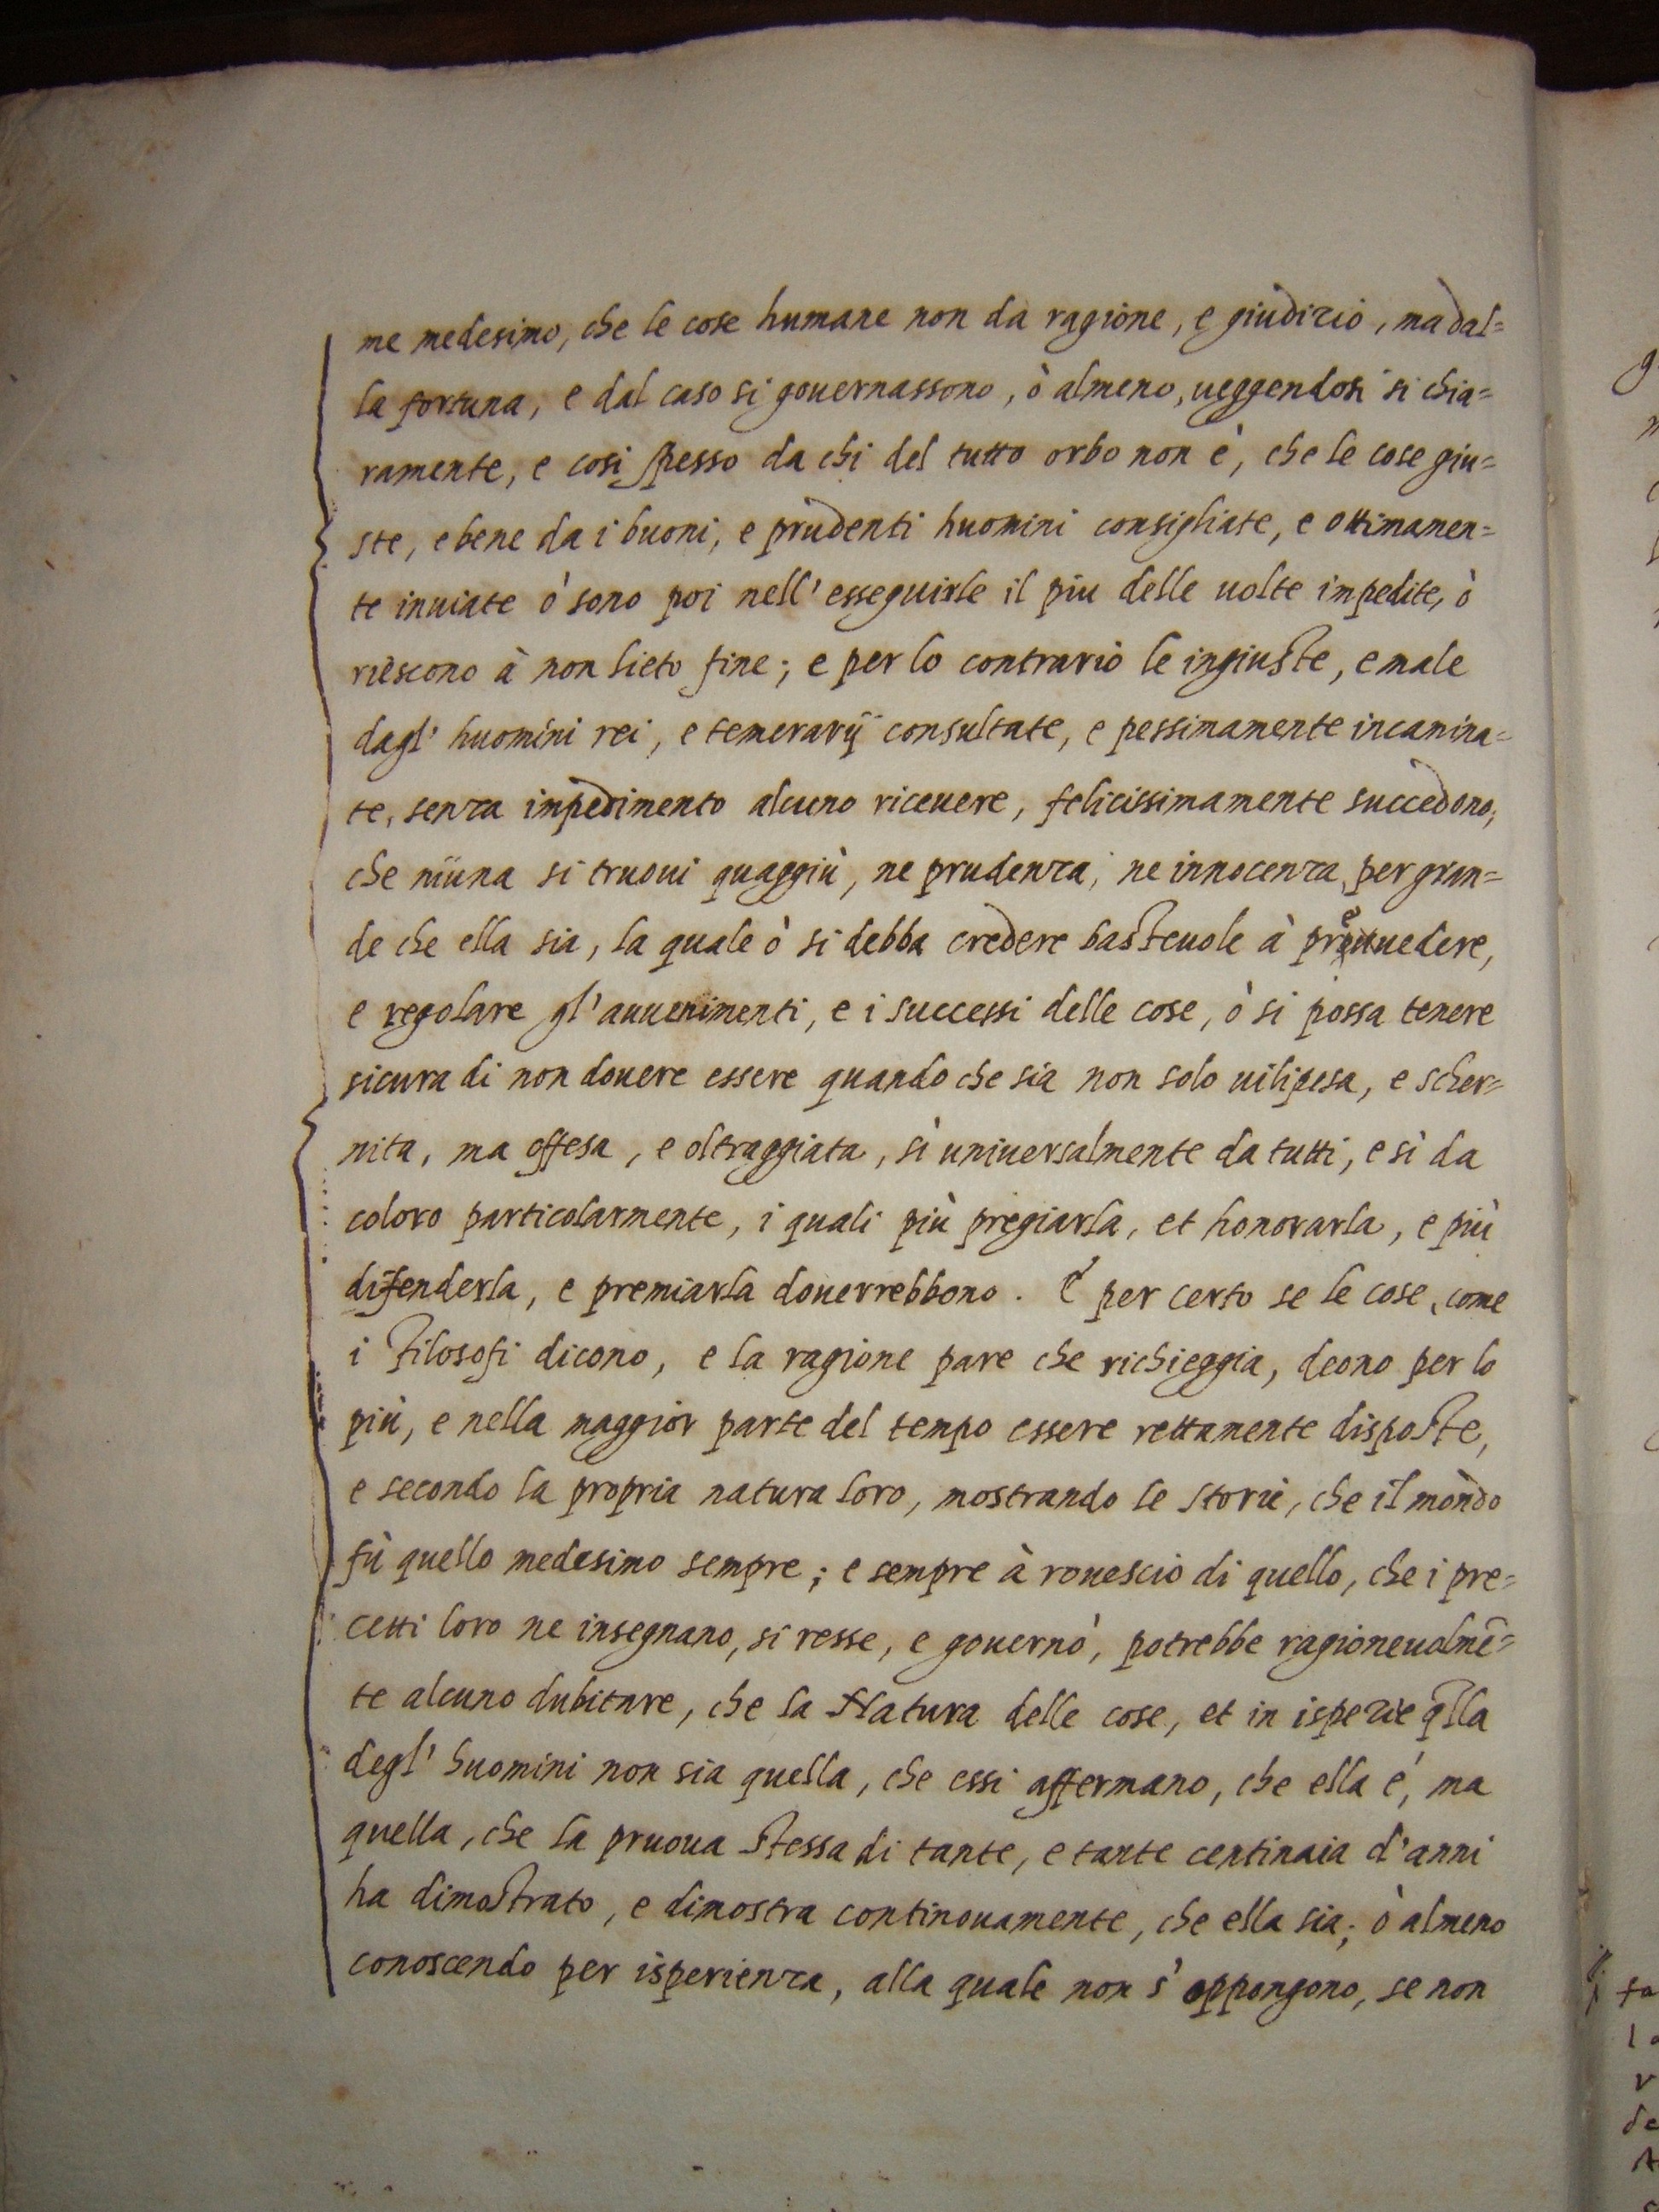 me medesimo, che le cose humane non da ragione, e giudizio, ma dal=
la fortuna, e dal caso si gouernassono, ò almeno, ueggendosi si chia=
ramente, e cosi spesso da chi del tutto orbo non è, che le cose giu=
ste, e bene da i buoni, e prudenti huomini consigliate, e ottimamen=
te inuiate ò sono poi nell' esseguirle il piu delle uolte impedite, ò
riescono à non lieto fine; e per lo contrario le ingiuste, e male
dagl' huomini rei, e temerarij consultate, e pessimamente incamina=
te, senza impedimento alcuno riceuere, felicissimamente succedono,
che niuna si truoui quaggiù, ne prudenza, ne innocenza, per gran=
de che ella sia, la quale ò si debba credere basteuole à preuedere,
e regolare gl' auuenimenti, e i successi delle cose, ò si possa tenere
sicura di non douere essere quando che sia non solo uilipesa, e scher=
nita, ma offesa, e oltraggiata, sì uniuersalmente da tutti, e sì da
coloro particolarmente, i quali più pregiarla, et honorarla, e più
difenderla, e premiarla douerrebbono. E per certo se le cose, come
i Filosofi dicono, e la ragione pare che richieggia, deono per lo
più, e nella maggior parte del tempo essere rettamente disposte,
e secondo la propria natura loro, mostrando le storie, che il mondo
fù quello medesimo sempre; e sempre à rouescio di quello, che i pre=
cetti loro ne insegnano, si resse, e gouernò, potrebbe ragioneuolmẽ=
te alcuno dubitare, che la Natura delle cose, et in ispezie q̃lla
degl' huomini non sia quella, che essi affermano, che ella è, ma
quella, che la pruoua stessa di tante, e tante centinaia d'anni
ha dimostrato, e dimostra continouamente, che ella sia; ò almeno
conoscendo per isperienza, alla quale non s' oppongono, se non